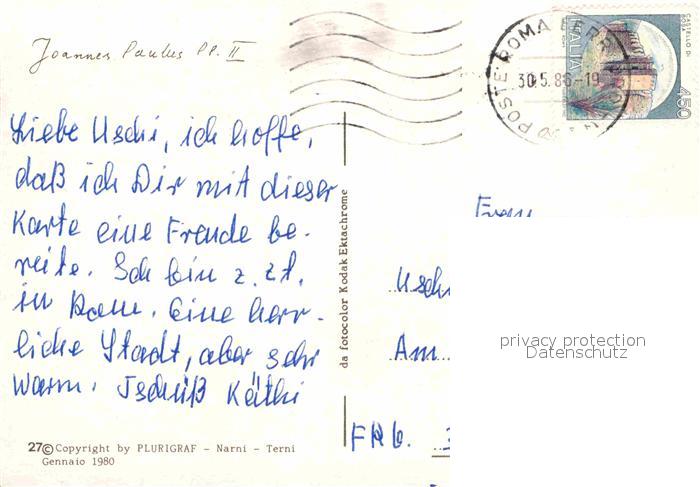 Joannes Paulus PP. II
POSTE ROMA
30.5.86-19
ITALIA
CASTELLO DI
450
Liebe Uschi, ich hoffe,
daß ich Dir mit dieser
Karte eine Freude be-
reite. Ich bin z. Zt.
in Rom. Eine herr-
liche Stadt, aber sehr
warm. Tschüß Käthi
da fotocolor Kodak Ektachrome
Frau
Uschi
Am
privacy protection
Datenschutz
27 © Copyright by PLURIGRAF - Narni - Terni
Gennaio 1980